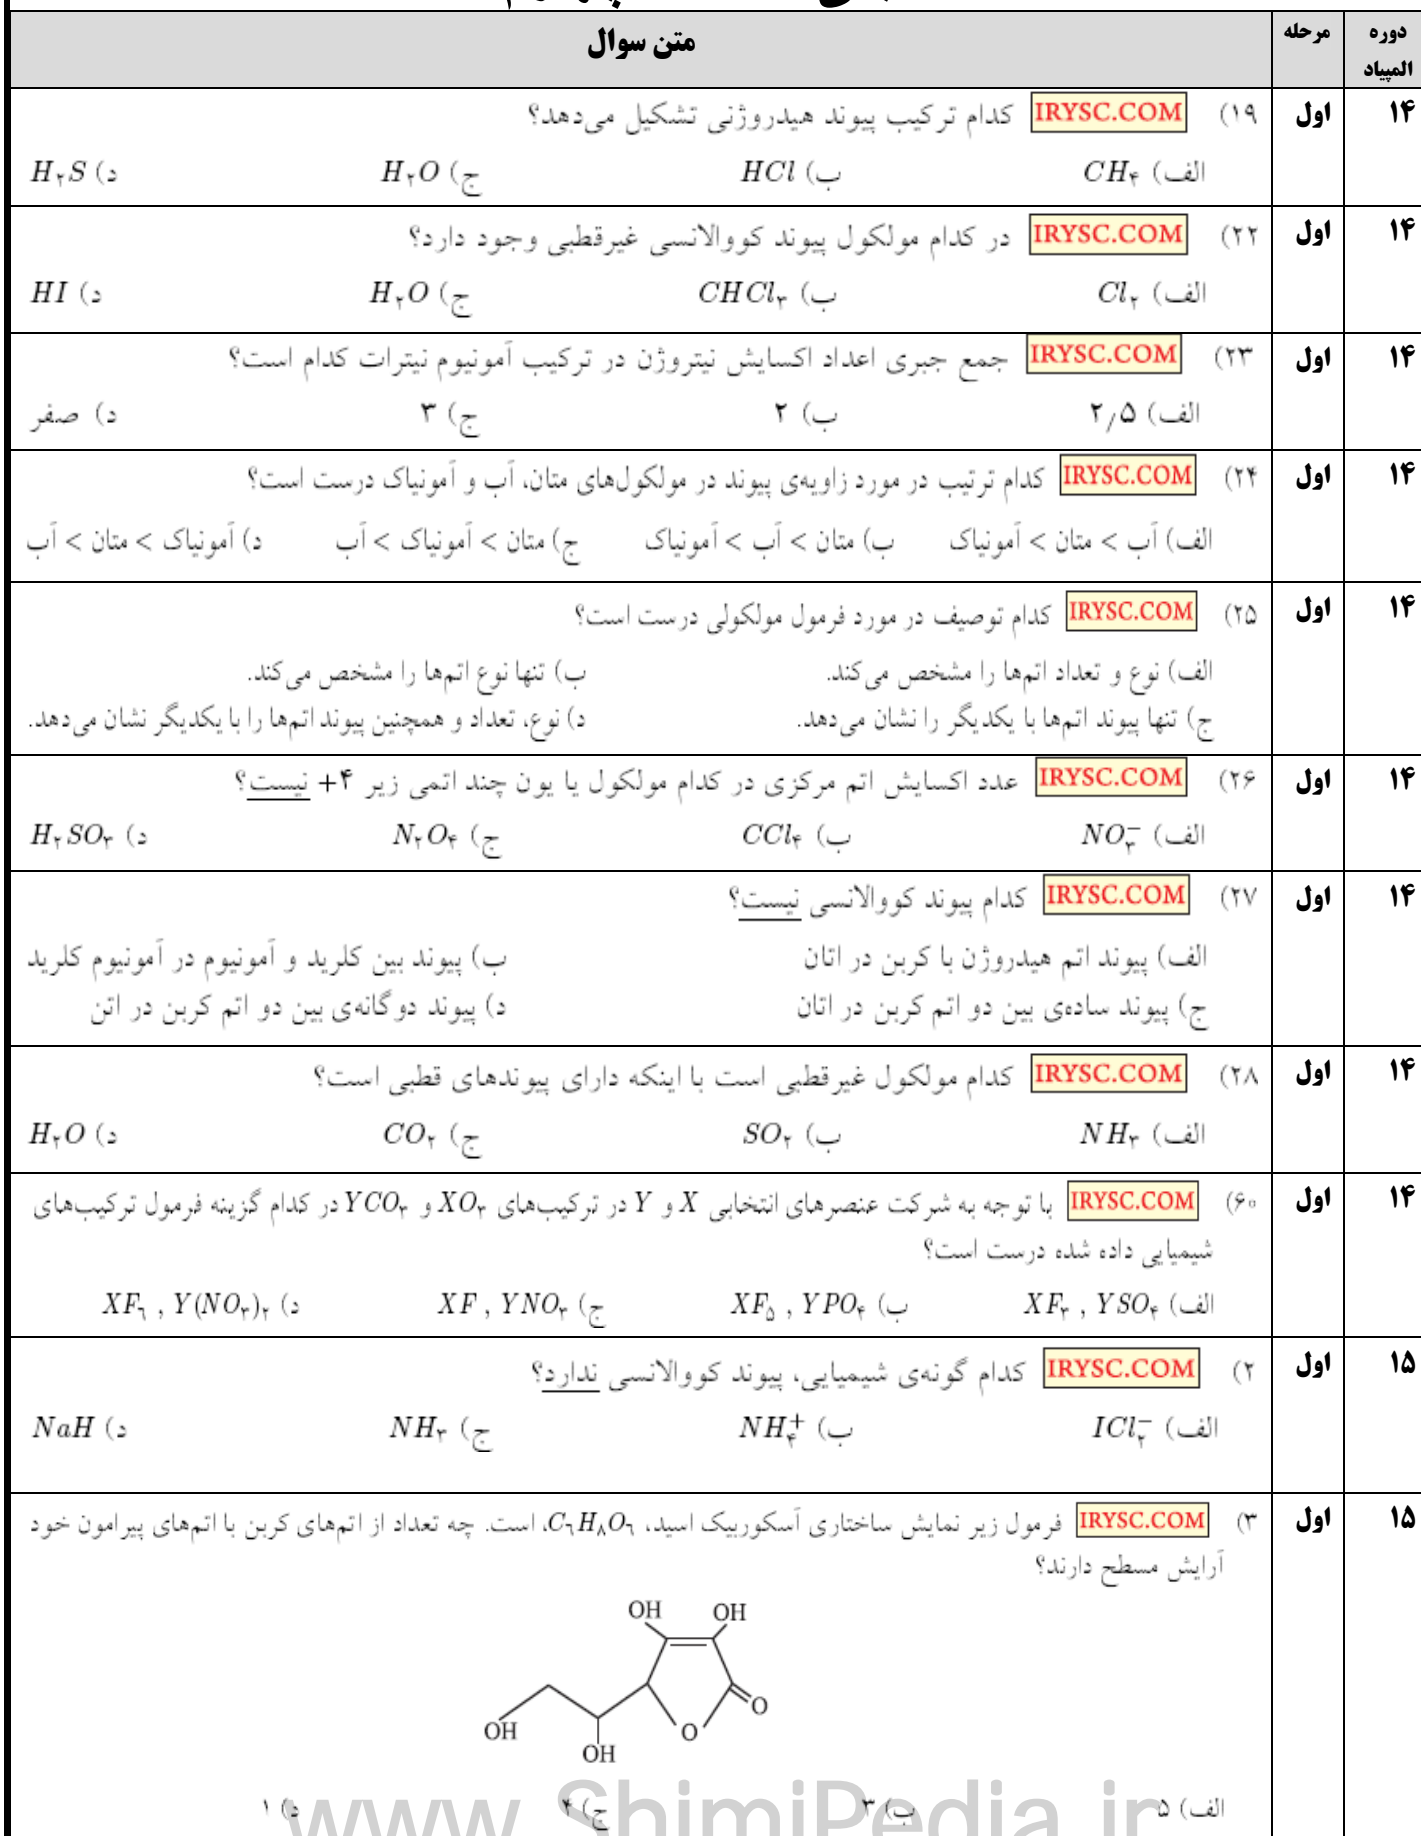 دوره المپیاد	مرحله	متن سوال
۱۴	اول	۱۹) IRYSC.COM کدام ترکیب پیوند هیدروژنی تشکیل می‌دهد؟
الف) CH۴	ب) HCl	ج) H۲O	د) H۲S
۱۴	اول	۲۲) IRYSC.COM در کدام مولکول پیوند کووالانسی غیرقطبی وجود دارد؟
الف) Cl۲	ب) CHCl۳	ج) H۲O	د) HI
۱۴	اول	۲۳) IRYSC.COM جمع جبری اعداد اکسایش نیتروژن در ترکیب آمونیوم نیترات کدام است؟
الف) ۲٫۵	ب) ۲	ج) ۳	د) صفر
۱۴	اول	۲۴) IRYSC.COM کدام ترتیب در مورد زاویه‌ی پیوند در مولکول‌های متان، آب و آمونیاک درست است؟
الف) آب > متان > آمونیاک	ب) متان > آب > آمونیاک	ج) متان > آمونیاک > آب	د) آمونیاک > متان > آب
۱۴	اول	۲۵) IRYSC.COM کدام توصیف در مورد فرمول مولکولی درست است؟
الف) نوع و تعداد اتم‌ها را مشخص می‌کند.	ب) تنها نوع اتم‌ها را مشخص می‌کند.
ج) تنها پیوند اتم‌ها با یکدیگر را نشان می‌دهد.	د) نوع، تعداد و همچنین پیوند اتم‌ها را با یکدیگر نشان می‌دهد.
۱۴	اول	۲۶) IRYSC.COM عدد اکسایش اتم مرکزی در کدام مولکول یا یون چند اتمی زیر ۴+ نیست؟
الف) NO۳⁻	ب) CCl۴	ج) N۲O۴	د) H۲SO۳
۱۴	اول	۲۷) IRYSC.COM کدام پیوند کووالانسی نیست؟
الف) پیوند اتم هیدروژن با کربن در اتان	ب) پیوند بین کلرید و آمونیوم در آمونیوم کلرید
ج) پیوند ساده‌ی بین دو اتم کربن در اتان	د) پیوند دوگانه‌ی بین دو اتم کربن در اتن
۱۴	اول	۲۸) IRYSC.COM کدام مولکول غیرقطبی است با اینکه دارای پیوندهای قطبی است؟
الف) NH۳	ب) SO۲	ج) CO۲	د) H۲O
۱۴	اول	۶۰) IRYSC.COM با توجه به شرکت عنصرهای انتخابی X و Y در ترکیب‌های XO۳ و YCO۳ در کدام گزینه فرمول ترکیب‌های
شیمیایی داده شده درست است؟
الف) XF۳ , YSO۴	ب) XF۵ , YPO۴	ج) XF , YNO۳	د) XF۶ , Y(NO۳)۲
۱۵	اول	۲) IRYSC.COM کدام گونه‌ی شیمیایی، پیوند کووالانسی ندارد؟
الف) ICl۲⁻	ب) NH۴⁺	ج) NH۳	د) NaH
۱۵	اول	۳) IRYSC.COM فرمول زیر نمایش ساختاری آسکوربیک اسید، C۶H۸O۶، است. چه تعداد از اتم‌های کربن با اتم‌های پیرامون خود
آرایش مسطح دارند؟
OH	OH
O
O
OH
OH
الف) ۵	ب) ۳	ج) ۴	د) ۱
www.ShimiPedia.ir